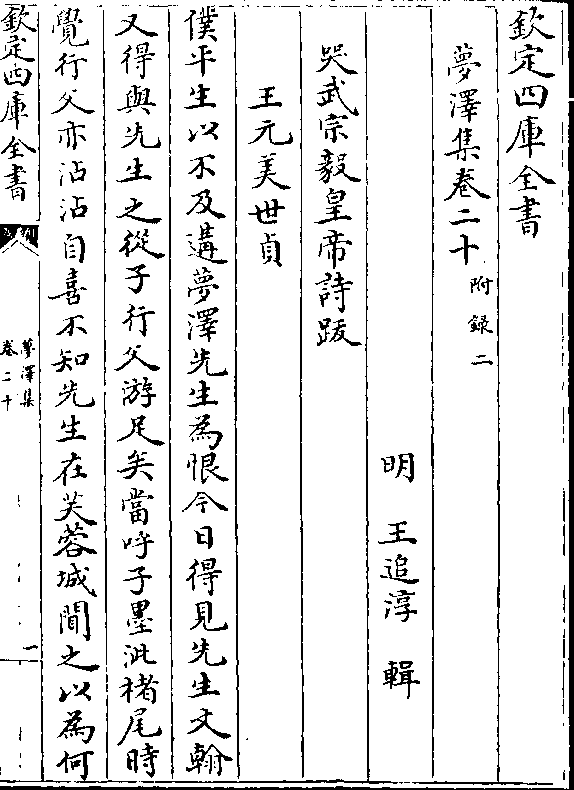 欽定四庫全書
夢澤集卷二十 附錄二
明 王追淳 輯
哭武宗毅皇帝詩跋
王元美世貞
僕平生以不及遘夢澤先生為恨今日得見先生文翰
又得與先生之從子行父游足矣當呼子墨泚楮尾時
覺行父亦沾沾自喜不知先生在芙蓉城聞之以為何
欽定四庫全書
夢澤集
卷二十
一